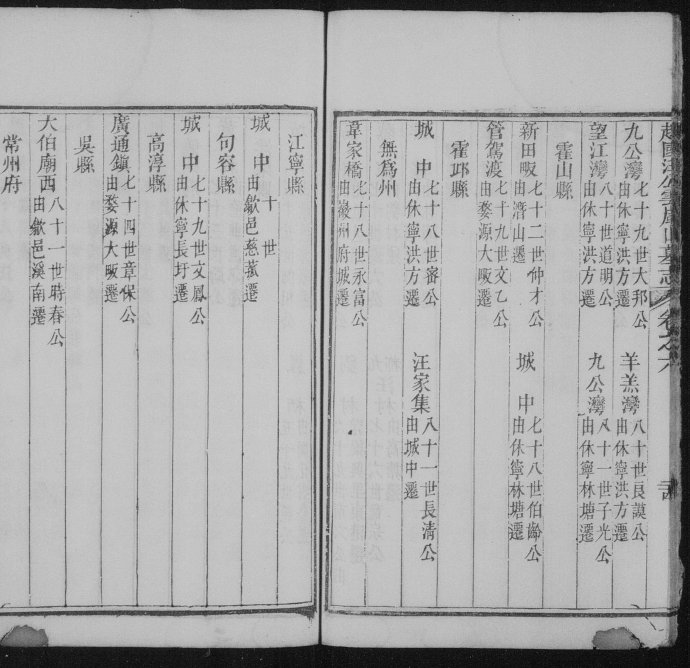 九公灣 七十九世大邦公 由休寧洪方遷 羊羔灣 八十世良謨公 由休寧洪方遷
望江灣 八十世道明公 由休寧洪方遷 九公灣 八十一世子光公 由休寧林塘遷
霍山縣
新田畈 七十二世仲才公 由潛山遷 城中 七十八世伯齡公 由休寧林塘遷
管駕渡 七十九世文乙公 由婺源大畈遷
霍邱縣
城中 七十八世審公 由休寧洪方遷 汪家集 八十一世長清公 由城中遷
無為州
韋家橋 七十八世永富公 由徽州府城遷
江寧縣
城中 十世 由歙邑慈菰遷
句容縣
城中 七十九世文鳳公 由休寧長圩遷
高淳縣
廣通鎮 七十四世章保公 由婺源大畈遷
吳縣
大伯廟西 八十一世時春公 由歙邑溪南遷
常州府